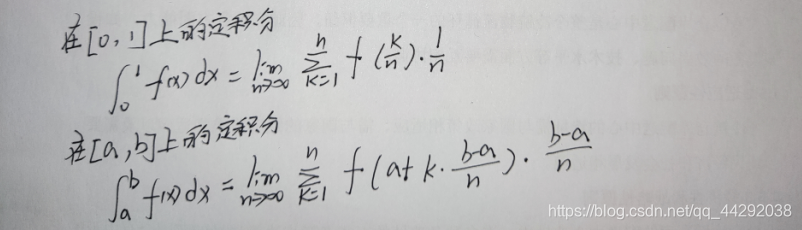 在[0,1]上的定积分
∫₀¹ f(x)dx = lim_{n→∞} ∑_{k=1}^{n} f(k/n)·1/n
在[a,b]上的定积分
∫ₐᵇ f(x)dx = lim_{n→∞} ∑_{k=1}^{n} f(a+k·(b-a)/n)·(b-a)/n
https://blog.csdn.net/qq_44292038